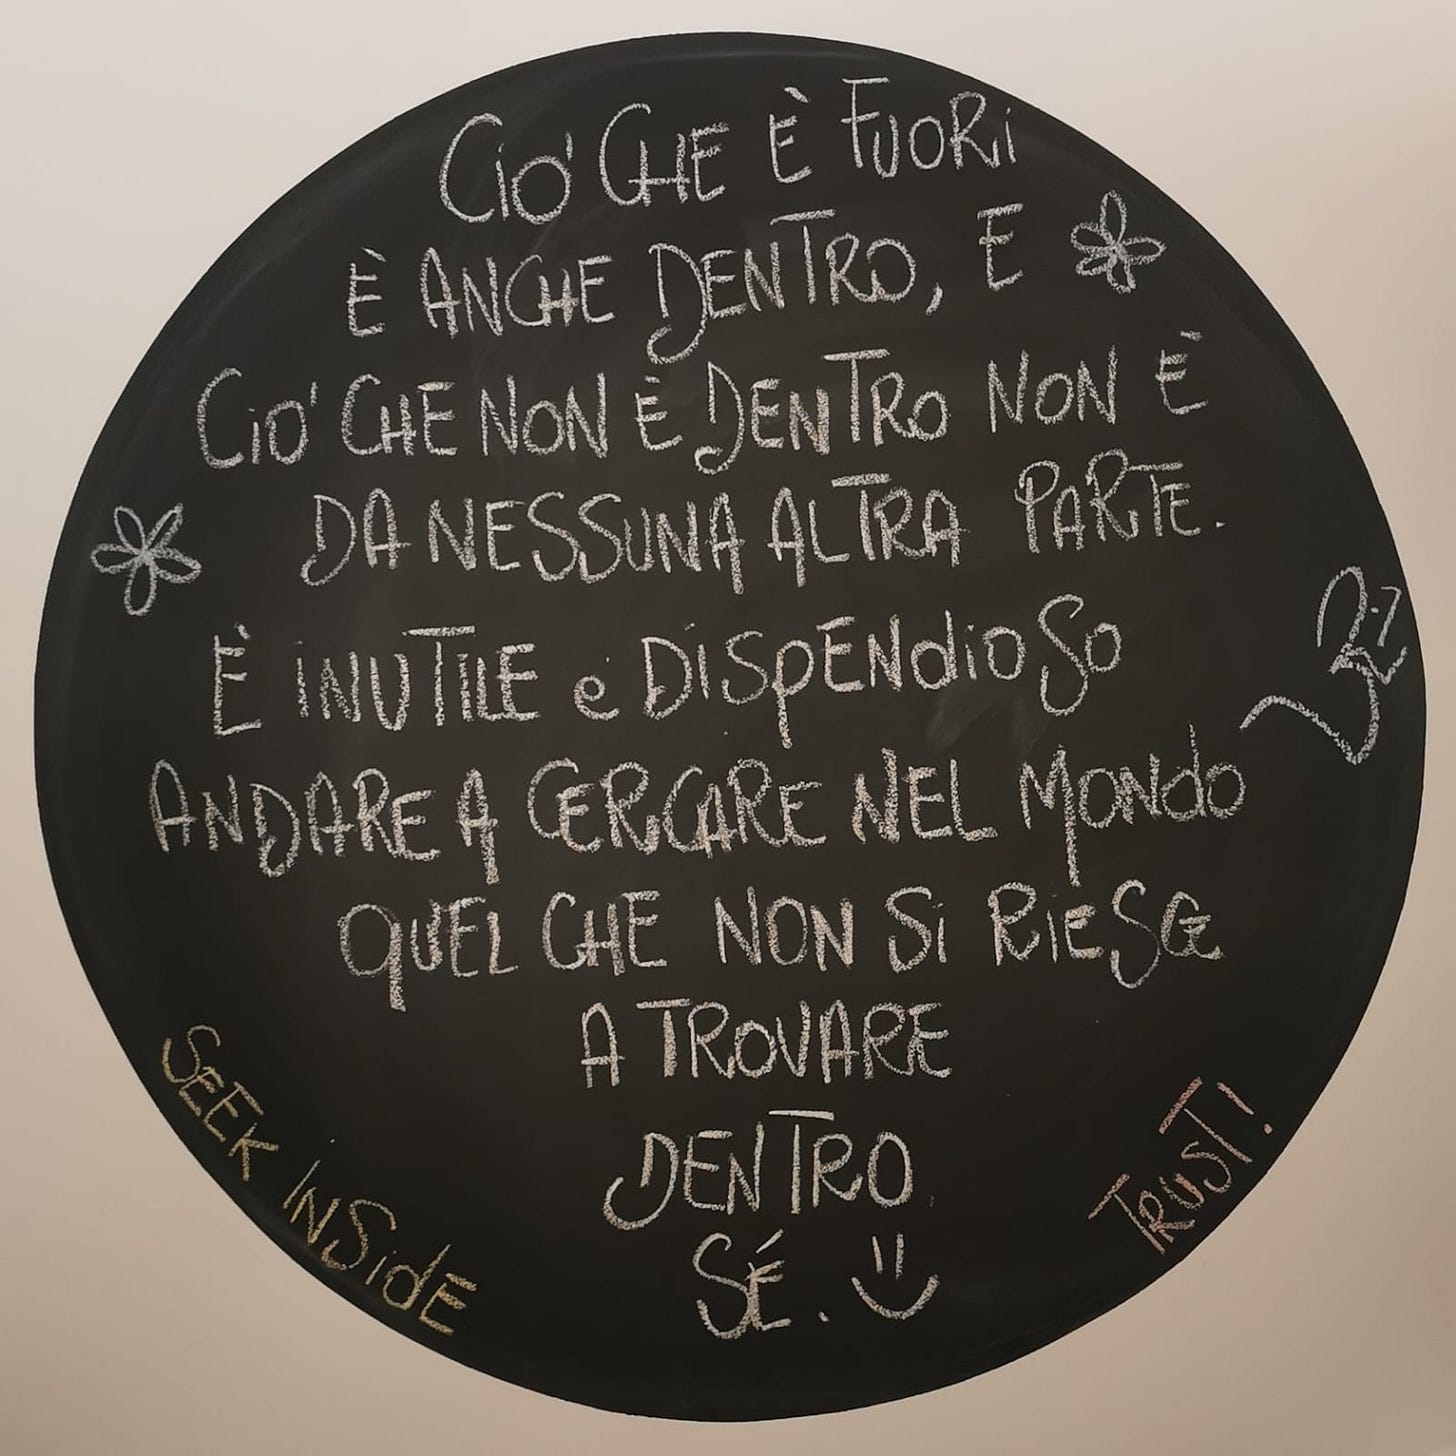 CiO' CHE È FUORi
È ANCHE DENTRO, E
CiO' CHE NON È DENTRO NON È
DA NESSUNA ALTRA PARTE.
È iNUTiLE e DiSpENdiOSO
ANDARE A CERCARE NEL MONdO
QUEL CHE NON Si RiESCE
A TROVARE
DENTRO
SÉ.
SEEK iNSidE
TRUST!